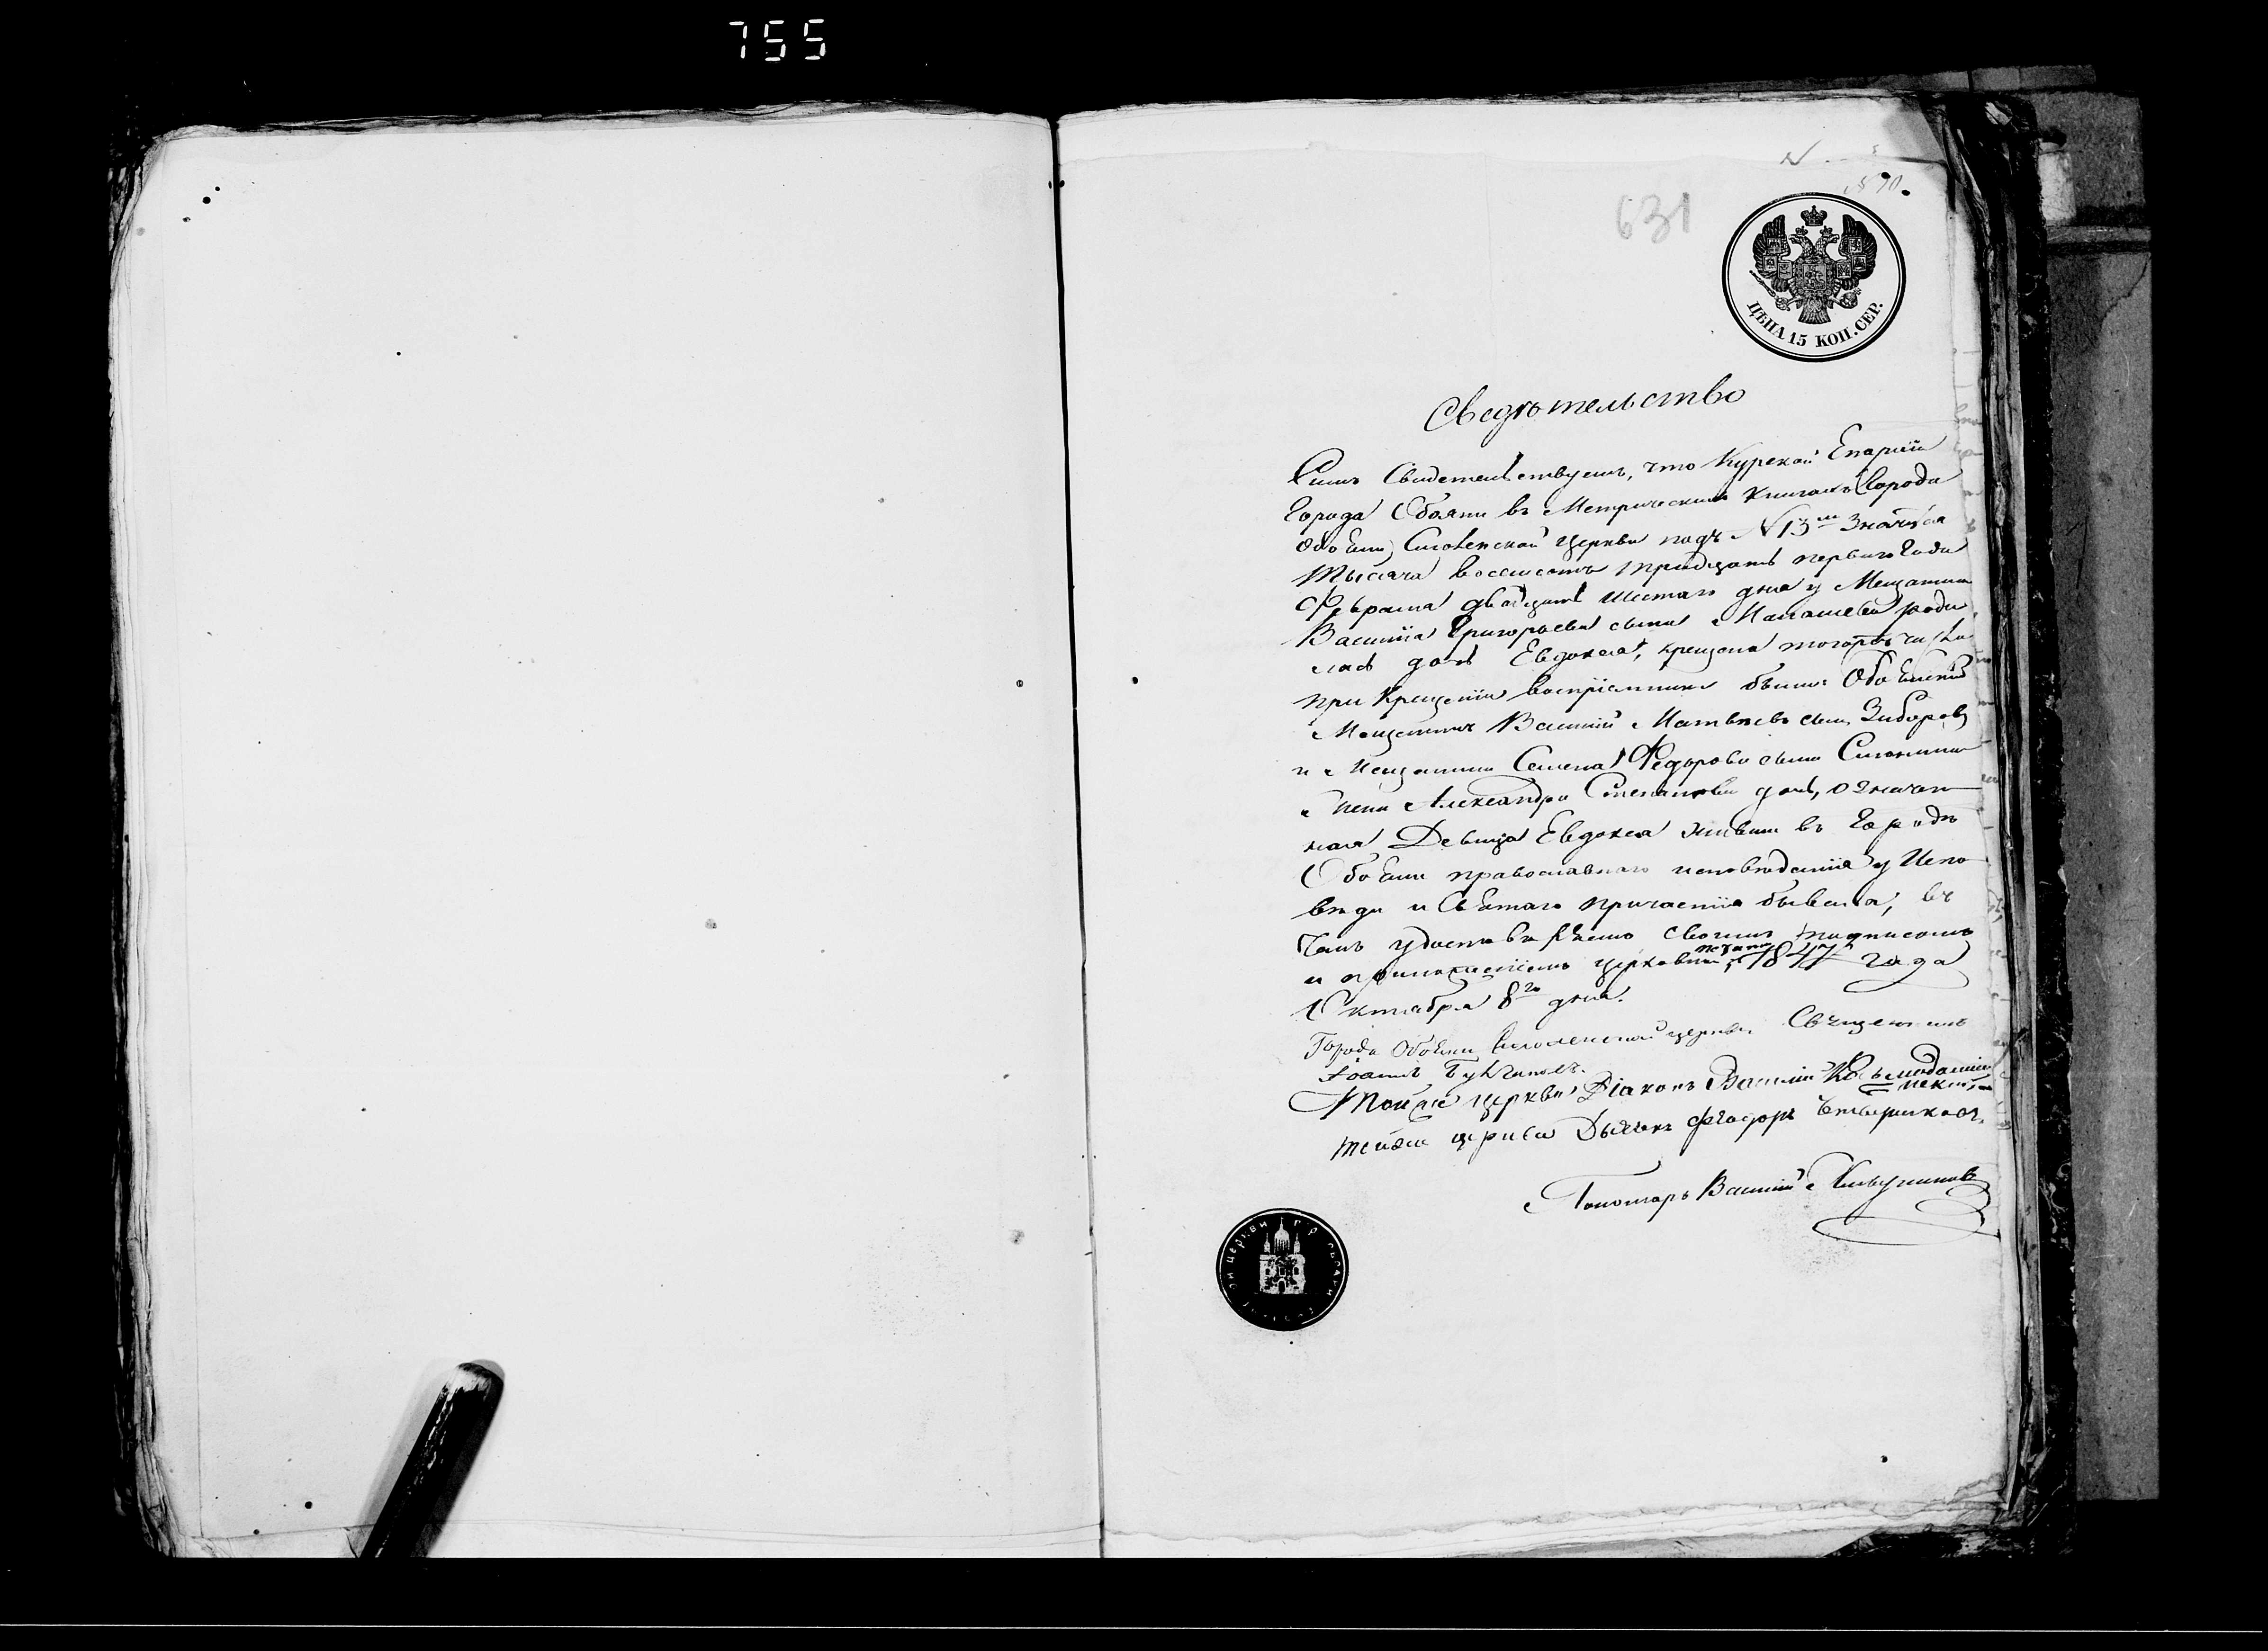 755
631
ЦѢНА 15 КОП. СЕР.
Сведѣтельство
Симъ Свидетельствуемъ, что Курской Епархіи
Города Обояни въ Метрическихъ книгахъ Города
Обояни Смоленской церкви подъ №13м значится
Тысяча восемсотъ тридцать перваго года
Февраля двадцать шестаго дня у Мещанина
Василія Григорьева сына роди
лась дочь Евдокея, крещена тогожъ числа
при Крещеніи воспріемники были: Обоянскій
Мещанинъ Василій Матвѣевъ сынъ Зиборовъ
и Мещанина Семена Федорова сына
жена Александра Степанова дочь, означен
ная Девица Евдокея живши въ Городѣ
Обояни православнаго исповѣданія у Испо
вѣди и Святаго причастія бывала, въ
Чемъ удостовѣряемъ своимъ подписомъ
и приложеніемъ церковной печати, 1847 года
Октября 8го дня.
Города Обояни Смоленской церкви Священникъ
Іоаннъ
Той же церкви Діаконъ Василій
той же церкви Дьячекъ Феодоръ
Пономарь Василій